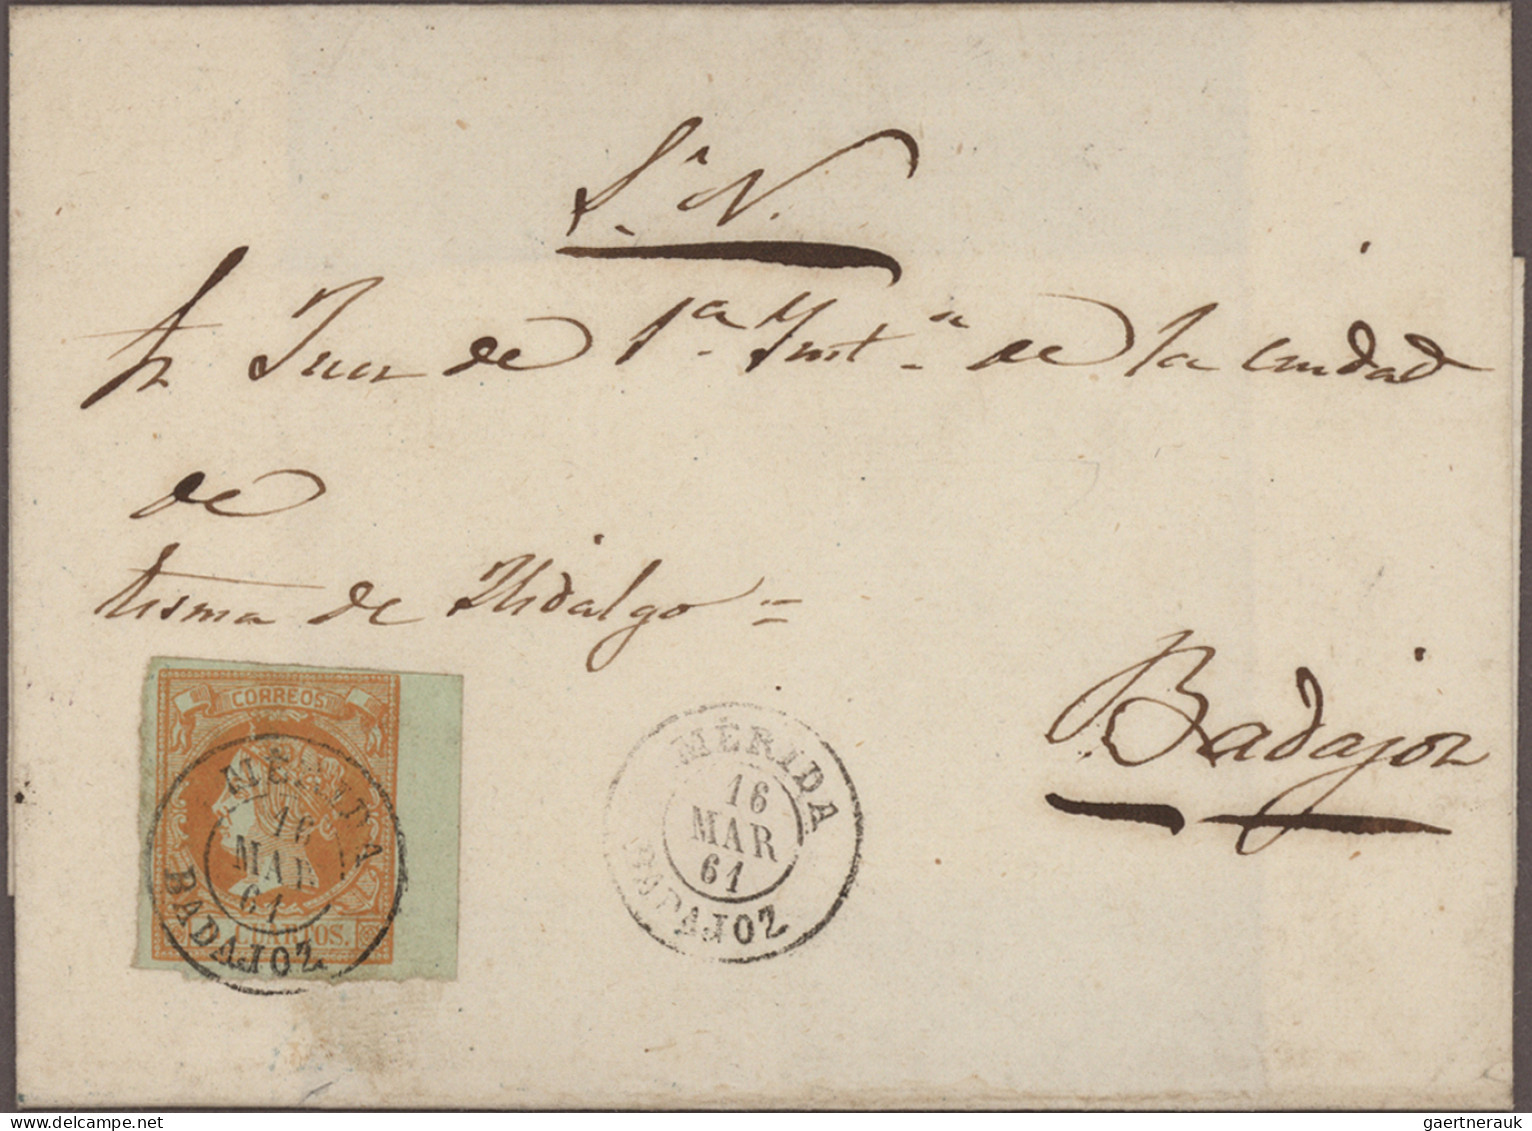 S.ⁿ N.
Sr Juez de 1ª. Instª. de la Ciudad
de
de Hidalgo =
Badajoz
CORREOS
CUARTOS.
MERIDA
16
MAR
61
BADAJOZ
MERIDA
16
MAR
61
BADAJOZ
gaertnerauk